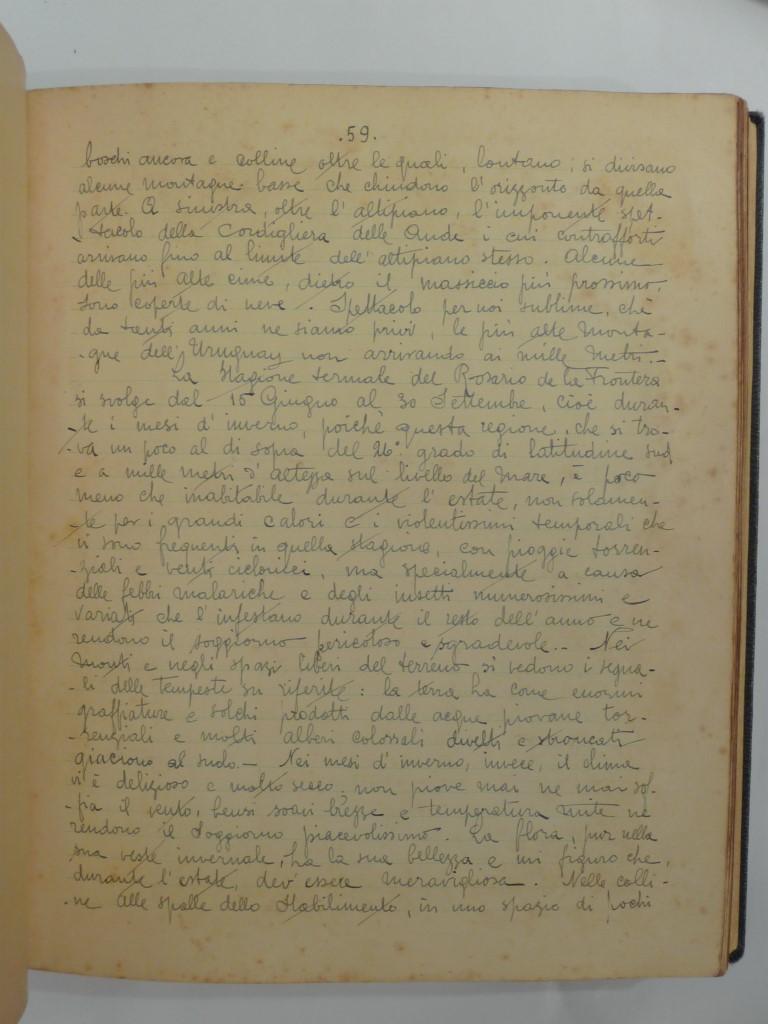 .59.
boschi ancora e colline oltre le quali, lontano, si divisano
alcune montagne basse che chiudono l'orizzonte da quella
parte. A sinistra, oltre l'altipiano, l'imponente spet-
-tacolo della Cordigliera delle Ande i cui contrafforti
arrivano fino al limite dell'altipiano stesso. Alcune
delle più alte cime, dietro il massiccio più prossimo,
sono coperte di neve. Spettacolo per noi sublime, chè
da tanti anni ne siamo privi, le più alte monta-
-gne dell'Uruguay non arrivando ai mille metri.-
La stagione termale del Rosario de la Frontera
si svolge dal 15 Giugno al 30 Settembre, cioè duran-
-te i mesi d'inverno, poichè questa regione, che si tro-
-va un poco al di sopra del 26º grado di latitudine sud
e a mille metri d'altezza sul livello del mare, è poco
meno che inabitabile durante l'estate, non solamen-
-te per i grandi calori e i violentissimi temporali che
vi sono frequenti in quella stagione, con pioggie torren-
-ziali e venti ciclonici, ma specialmente a causa
delle febbri malariche e degli insetti numerosissimi e
variati che l'infestano durante il resto dell'anno e ne
rendono il soggiorno pericoloso e sgradevole.- Nei
monti e negli spazi liberi del terreno si vedono i segna-
-li delle tempeste su riferite: la terra ha come enormi
graffiature e solchi prodotti dalle acque piovane tor-
-renziali e molti alberi colossali divelti e stroncati
giaciono al suolo.- Nei mesi d'inverno, invece, il clima
vi è delizioso e molto secco, non piove mai ne mai sof-
-fia il vento, bensi soavi brezze e temperatura mite ne
rendono il soggiorno piacevolissimo. La flora, pur nella
sua veste invernale, ha la sua bellezza e mi figuro che,
durante l'estate, dev'essere meravigliosa. Nelle colli-
-ne alle spalle dello Stabilimento, in uno spazio di pochi